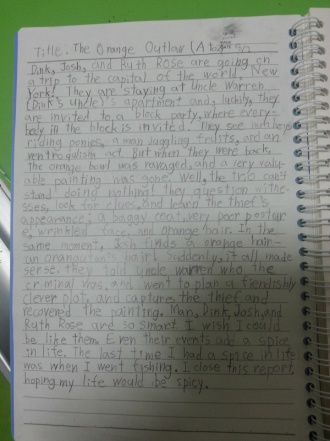 Title. The Orange Outlaw (A to Z
Dink, Josh, and Ruth Rose are going on
a trip to the capital of the world, New
York! They are staying at uncle Warren
(Dink's uncle)'s apartment and, luckily, they
are invited to a block party, where every-
body in the block is invited. They see monkeys
riding ponies, a man juggling fruits, and an
ventriloquism act. But when they were back,
the orange bowl was ravaged, and a very valu-
able painting was gone! Well, the trio can't
stand doing nothing! They question witne-
sses, look for clues, and learn the thief's
appearance; a baggy coat, very poor postur
e, wrinkled face, and orange hair. In the
same moment, Josh finds a orange hair-
an orangutan's hair! Suddenly, it all made
sense. They told uncle Warren who the
criminal was, and went to plan a fiendishly
clever plot, and capture the thief and
recovered the painting. Man, Dink, Josh, and
Ruth Rose are so smart. I wish I could
be like them. Even their events add a spice
in life. The last time I had a spice in life
was when I went fishing. I close this report,
hoping my life would be spicy.